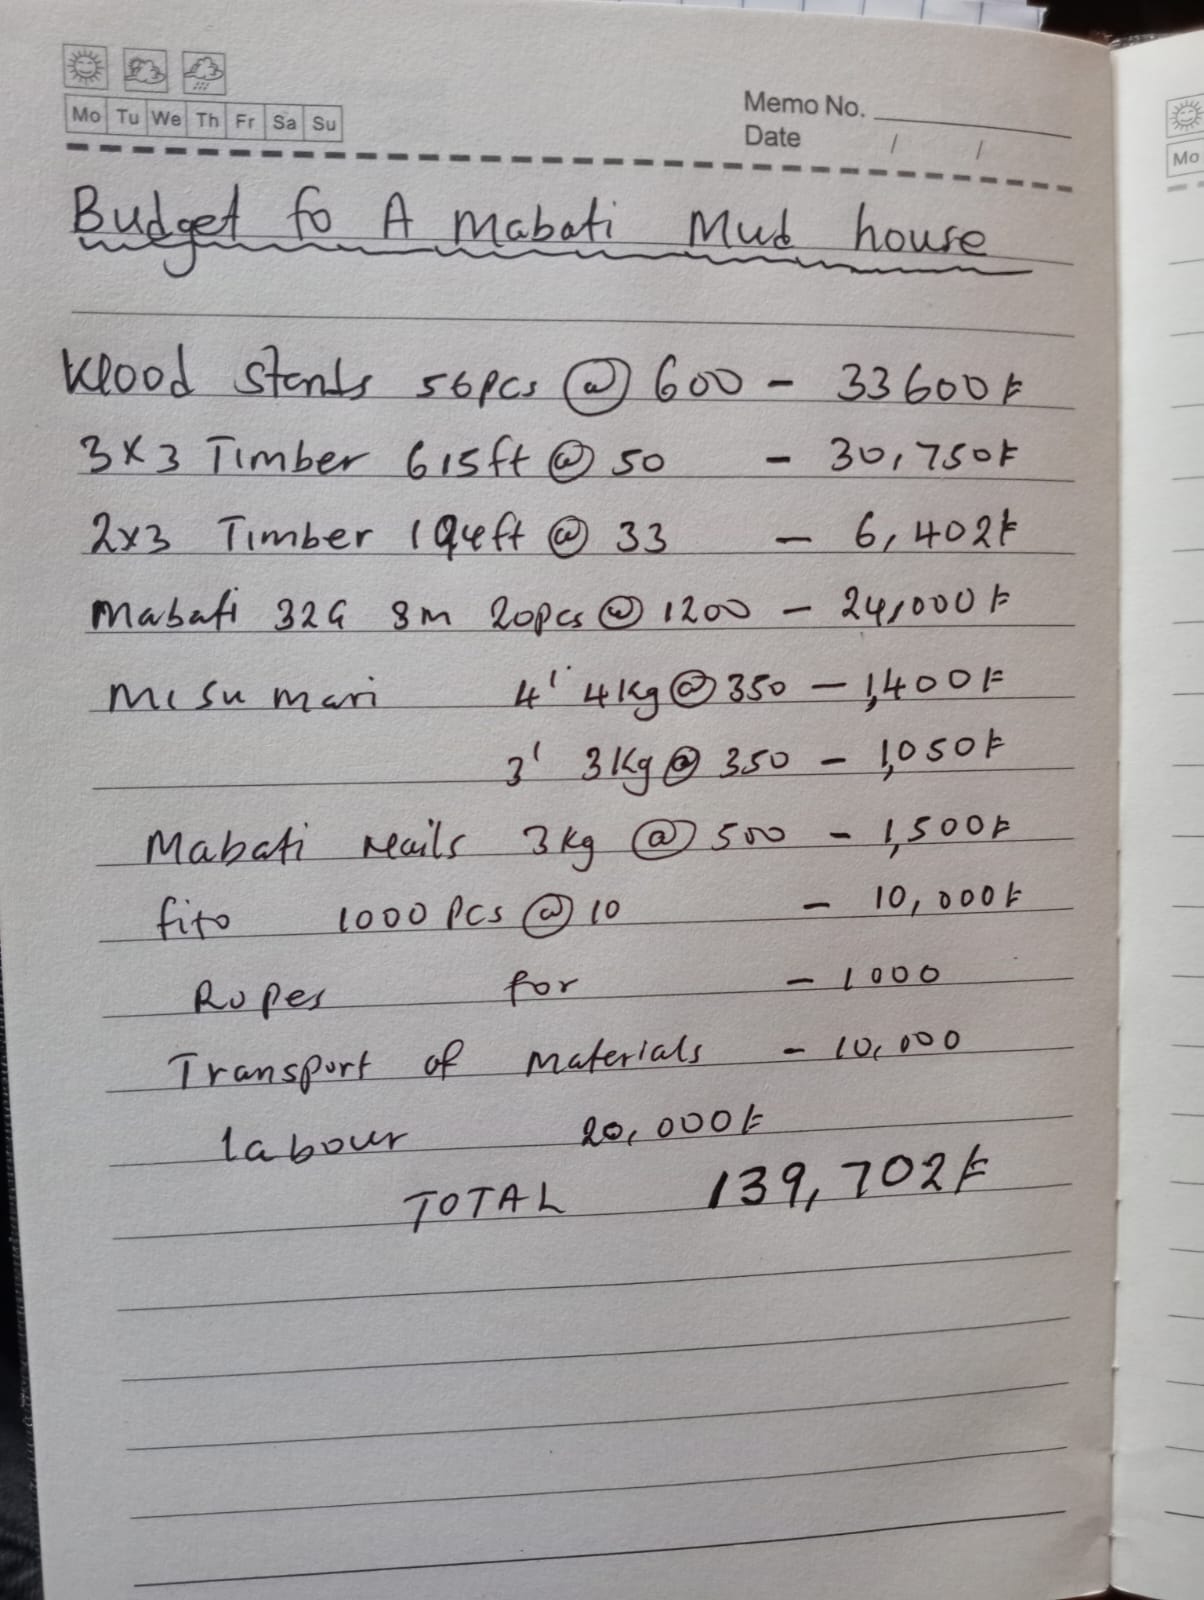 Mo Tu We Th Fr Sa Su
Memo No.
Date / /
Budget fo A Mabati Mud house
Wood Stands 56pcs @ 600 - 33600/=
3x3 Timber 615ft @ 50 - 30,750/=
2x3 Timber 194ft @ 33 - 6,402/=
Mabati 32G 3m 20pcs @ 1200 - 24,000/=
Misumari 4' 4Kg @ 350 - 1,400/=
3' 3Kg @ 350 - 1,050/=
Mabati Nails 3kg @ 500 - 1,500/=
fito 1000 Pcs @ 10 - 10,000/=
Ropes for - 1000
Transport of Materials - 10,000
labour 20,000/=
TOTAL 139,702/=
Mo